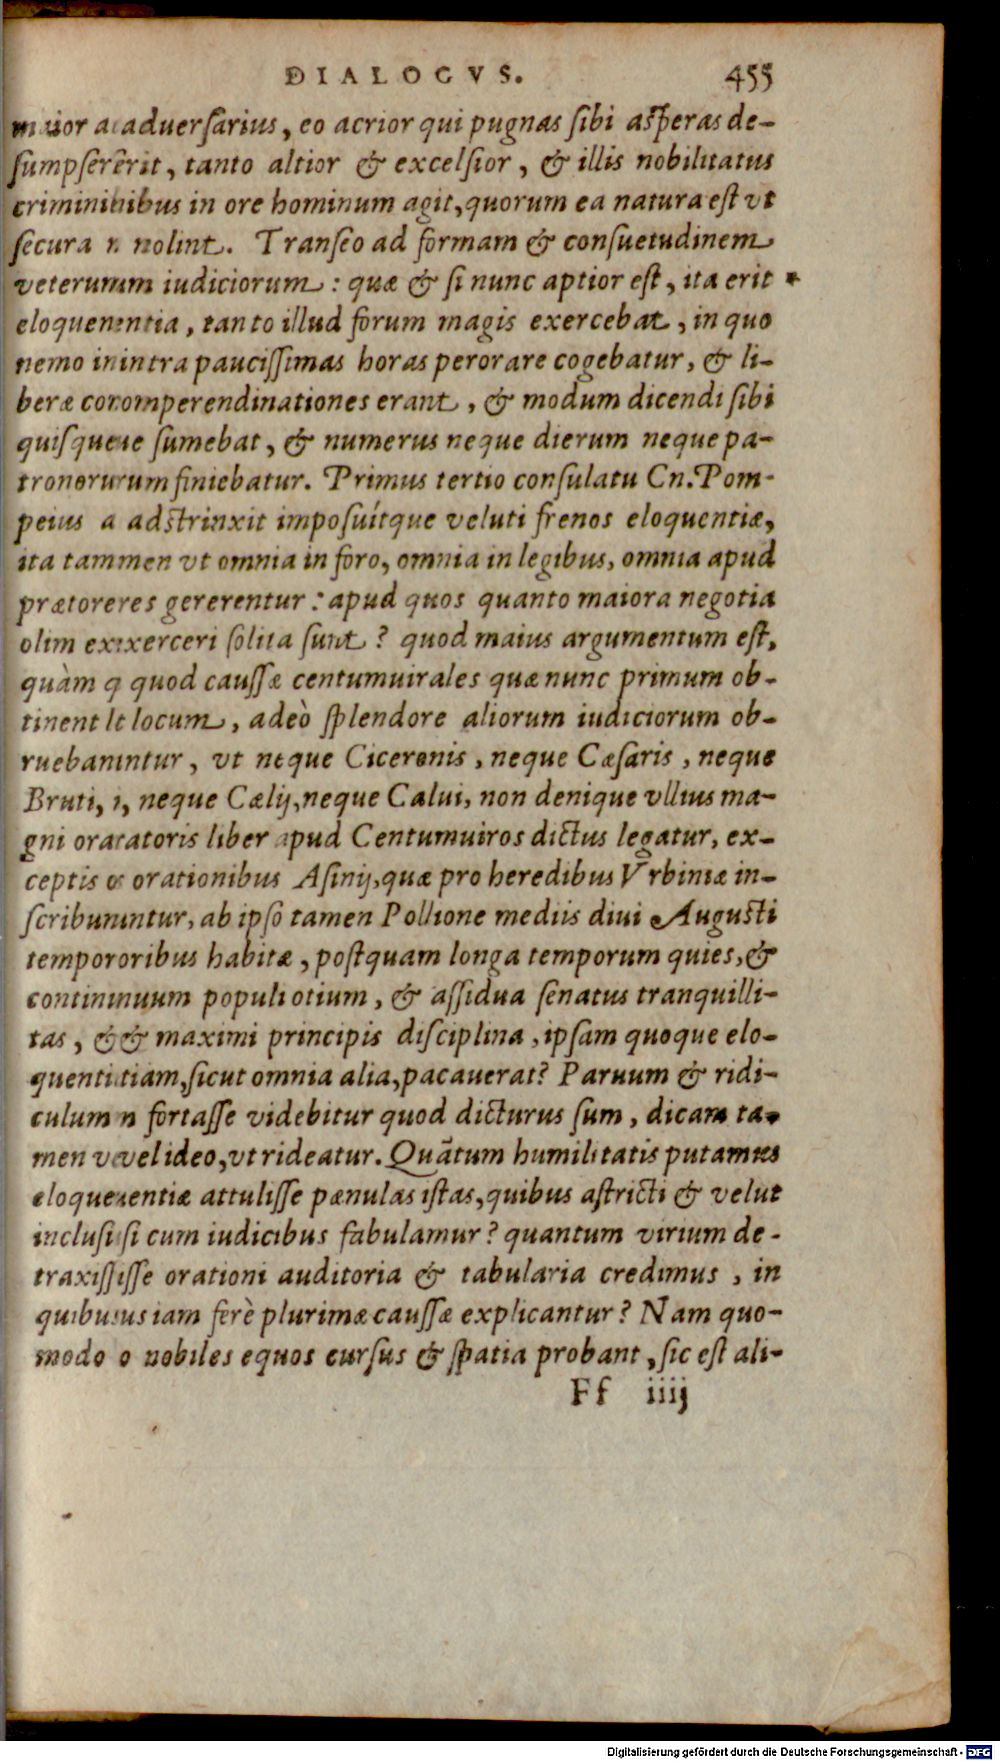 DIALOGVS. 455
maior aduerſarius, eo acrior qui pugnas ſibi aſperas de-
ſumpſerit, tanto altior & excelſior, & illis nobilitatus
criminibus in ore hominum agit, quorum ea natura eſt vt
ſecura nolint. Tranſeo ad formam & conſuetudinem
veterum iudiciorum: quæ & ſi nunc aptior eſt, ita erit *
eloquentia, tanto illud forum magis exercebat, in quo
nemo intra pauciſſimas horas perorare cogebatur, & li-
beræ comperendinationes erant, & modum dicendi ſibi
quiſque ſumebat, & numerus neque dierum neque pa-
tronorum finiebatur. Primus tertio conſulatu Cn. Pom-
peius adſtrinxit impoſuítque veluti frenos eloquentiæ,
ita tamen vt omnia in foro, omnia in legibus, omnia apud
prætores gererentur: apud quos quanto maiora negotia
olim exerceri ſolita ſunt? quod maius argumentum eſt,
quàm quod cauſſæ centumuirales quæ nunc primum ob-
tinent locum, adeò ſplendore aliorum iudiciorum ob-
ruebantur, vt neque Ciceronis, neque Cæſaris, neque
Bruti, neque Cælij, neque Calui, non denique vllius ma-
gni oratoris liber apud Centumuiros dictus legatur, ex-
ceptis orationibus Aſinij, quæ pro heredibus Vrbiniæ in-
ſcribuntur, ab ipſo tamen Pollione mediis diui Auguſti
temporibus habitæ, poſtquam longa temporum quies, &
continuum populi otium, & aſſidua ſenatus tranquilli-
tas, & maximi principis diſciplina, ipſam quoque elo-
quentiam, ſicut omnia alia, pacauerat? Paruum & ridi-
culum fortaſſe videbitur quod dicturus ſum, dicam ta-
men vel ideo, vt rideatur. Quãtum humilitatis putamus
eloquentiæ attuliſſe pænulas iſtas, quibus aſtricti & velut
incluſi cum iudicibus fabulamur? quantum virium de-
traxiſſe orationi auditoria & tabularia credimus, in
quibus iam ferè plurimæ cauſſæ explicantur? Nam quo-
modo nobiles equos curſus & ſpatia probant, ſic eſt ali-
Ff iiij
Digitalisierung gefördert durch die Deutsche Forschungsgemeinschaft - DFG